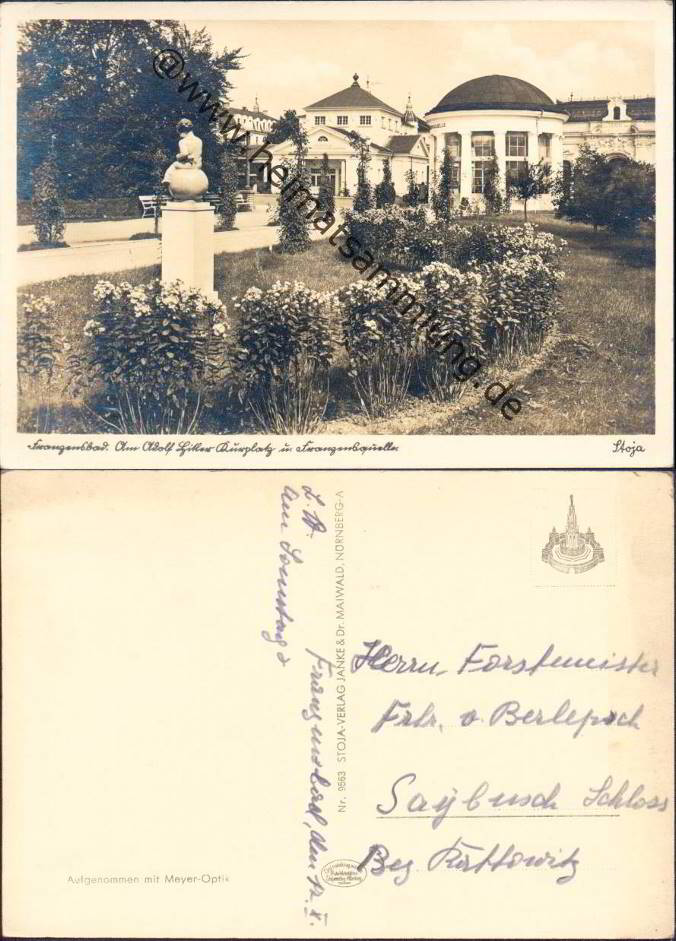 @ www.heimatsammlung.de
Franzensbad. Am Adolf Hitler Kurplatz u. Franzensquelle.
Stoja
Nr. 9563 STOJA-VERLAG JANKE & Dr. MAIWALD, NÜRNBERG-A
Am Sonntag
Franzensbad, den
Herrn Forstmeister
Frhr. v. Berlepsch
Saybusch Schloss
Bez. Kattowitz
Aufgenommen mit Meyer-Optik